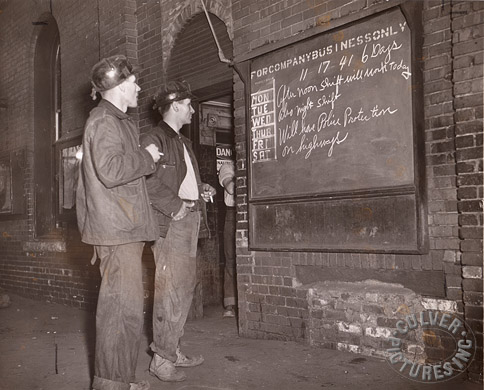 FOR COMPANY BUSINESS ONLY
11 17 - 41 6 Days
MON
TUE
WED
THUR
FRI
SAT
Afternoon Shift will work Today
also night Shift
Will have Police Protection
on highways
DAN
CULVER
PICTURES INC